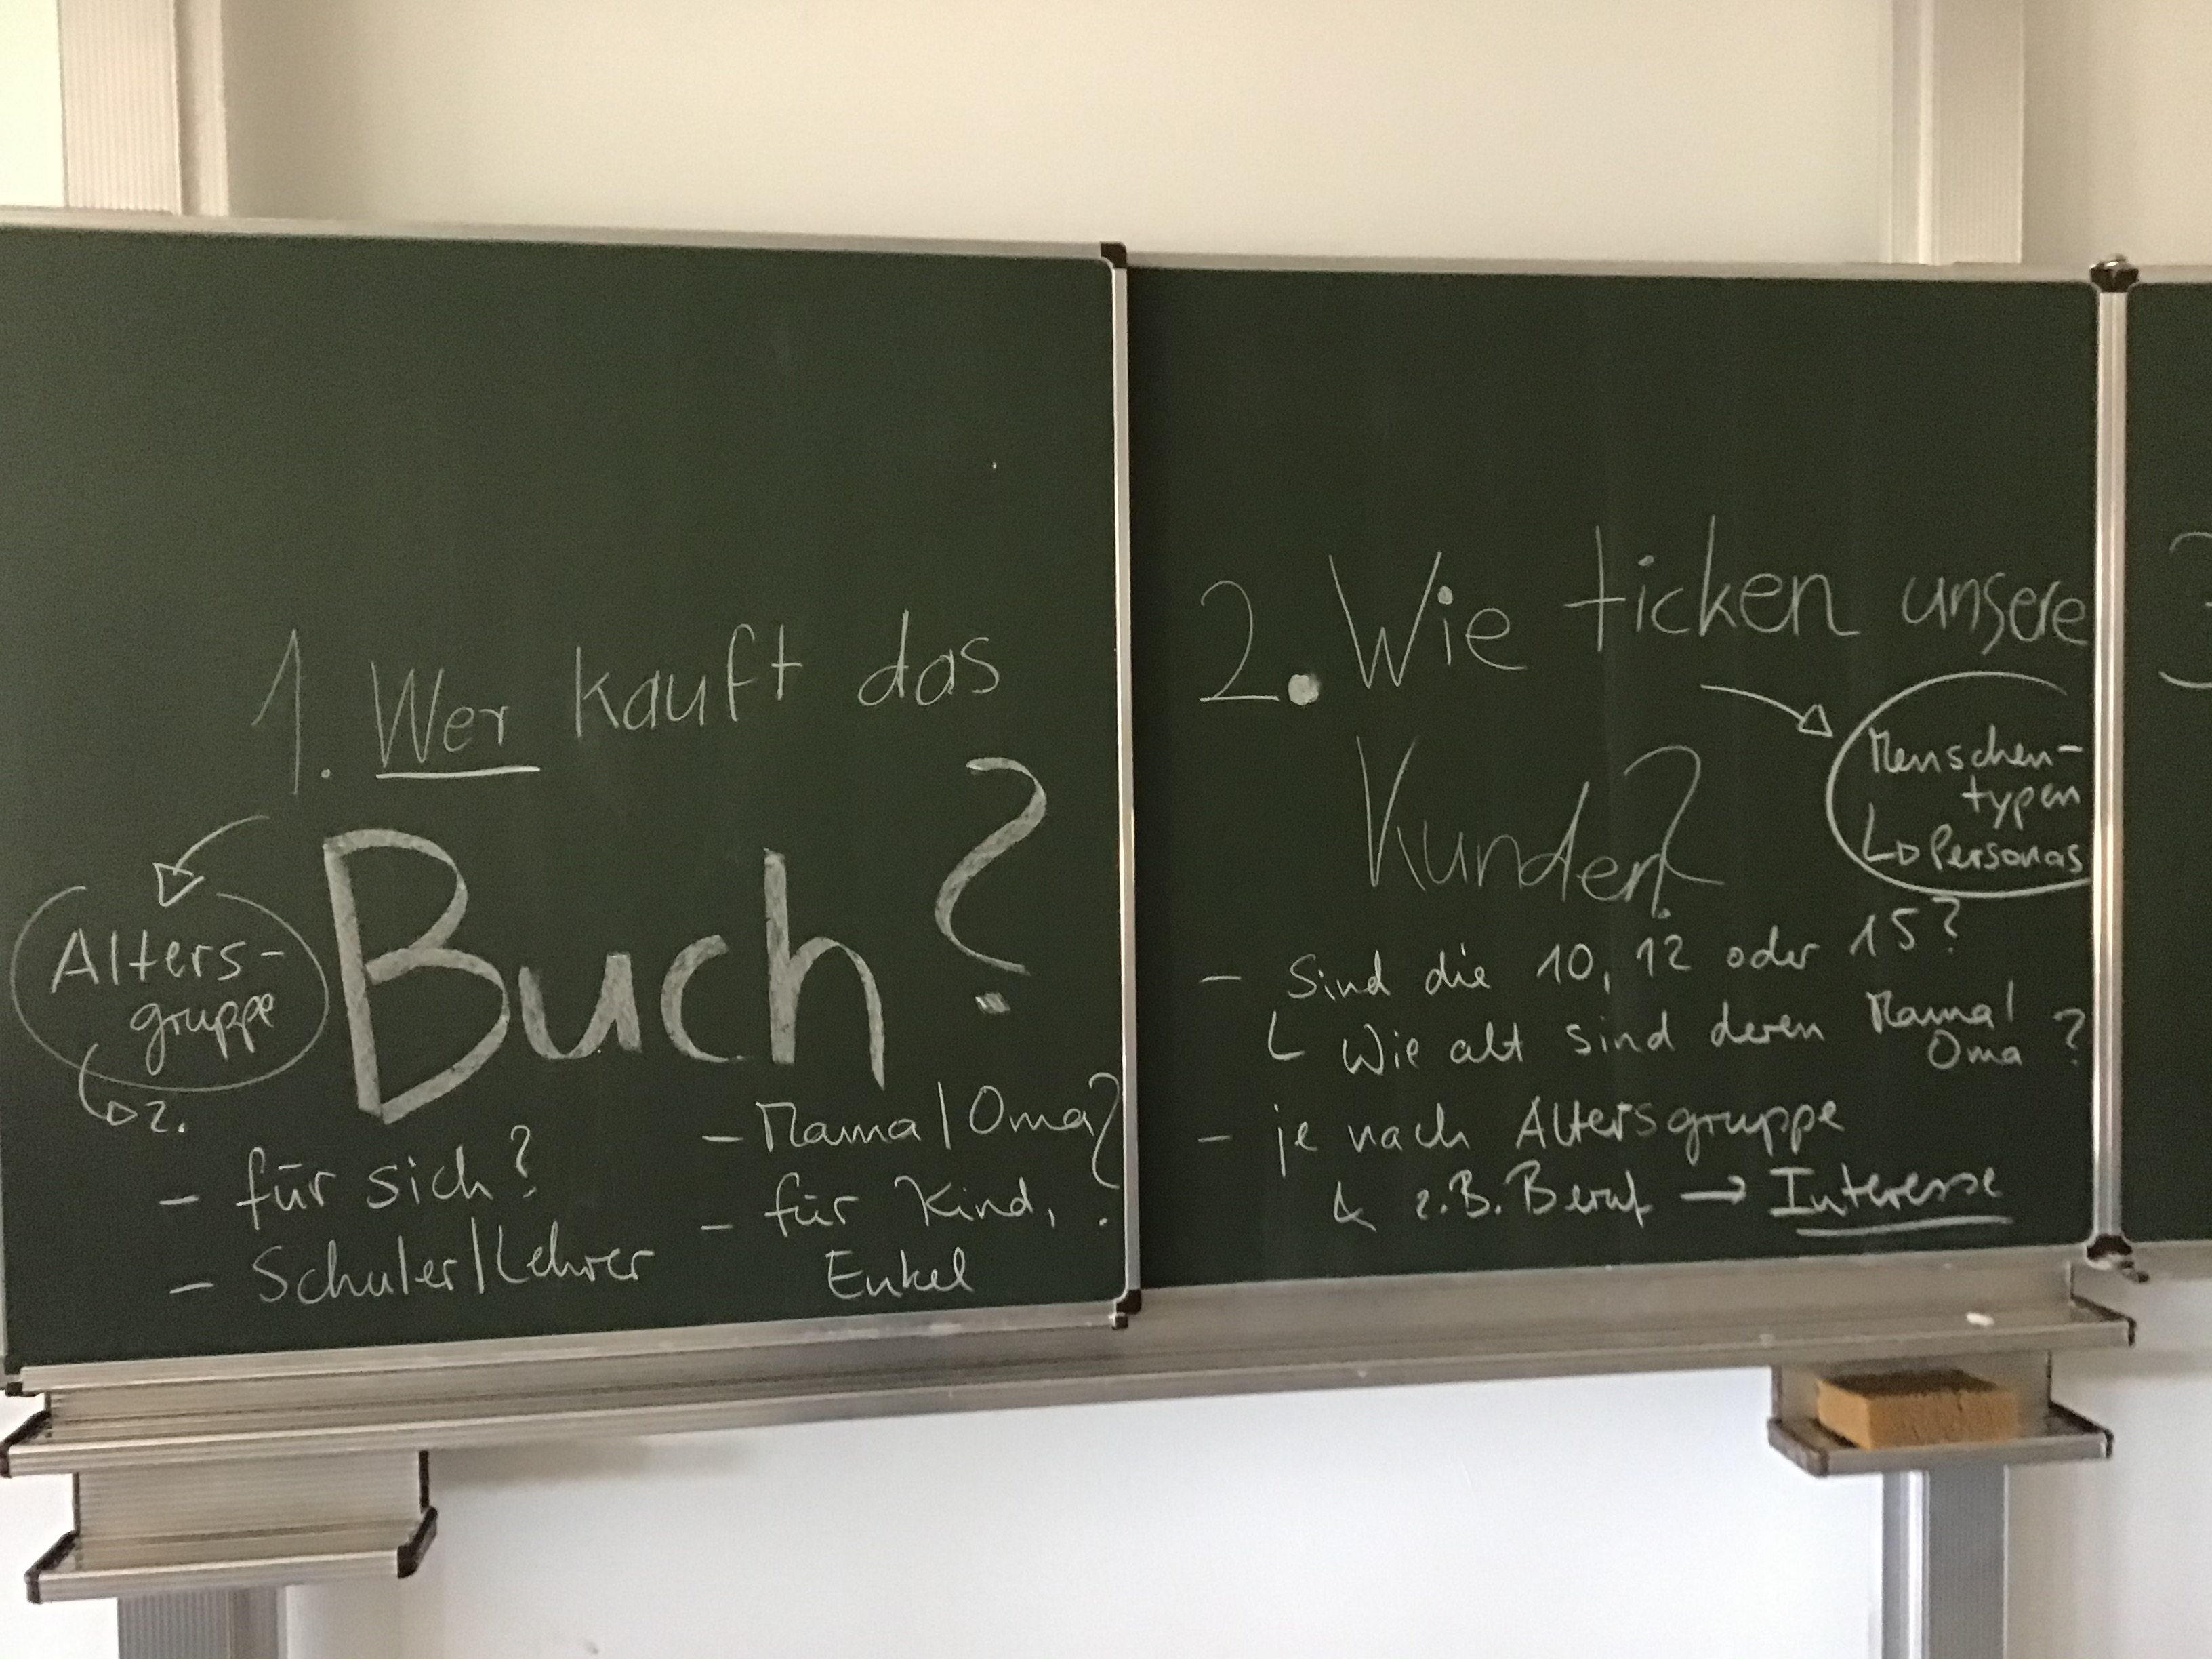 1. Wer kauft das
Buch?
Alters-
gruppe
2.
- für sich?
- Schuler/Lehrer
- Mama/Oma?
- für Kind,
Enkel
2. Wie ticken unsere
Kunden?
Menschen-
typen
Personas
- Sind die 10, 12 oder 15?
Wie alt sind deren Mama/
Oma ?
- je nach Altersgruppe
& z.B. Beruf → Interesse
3